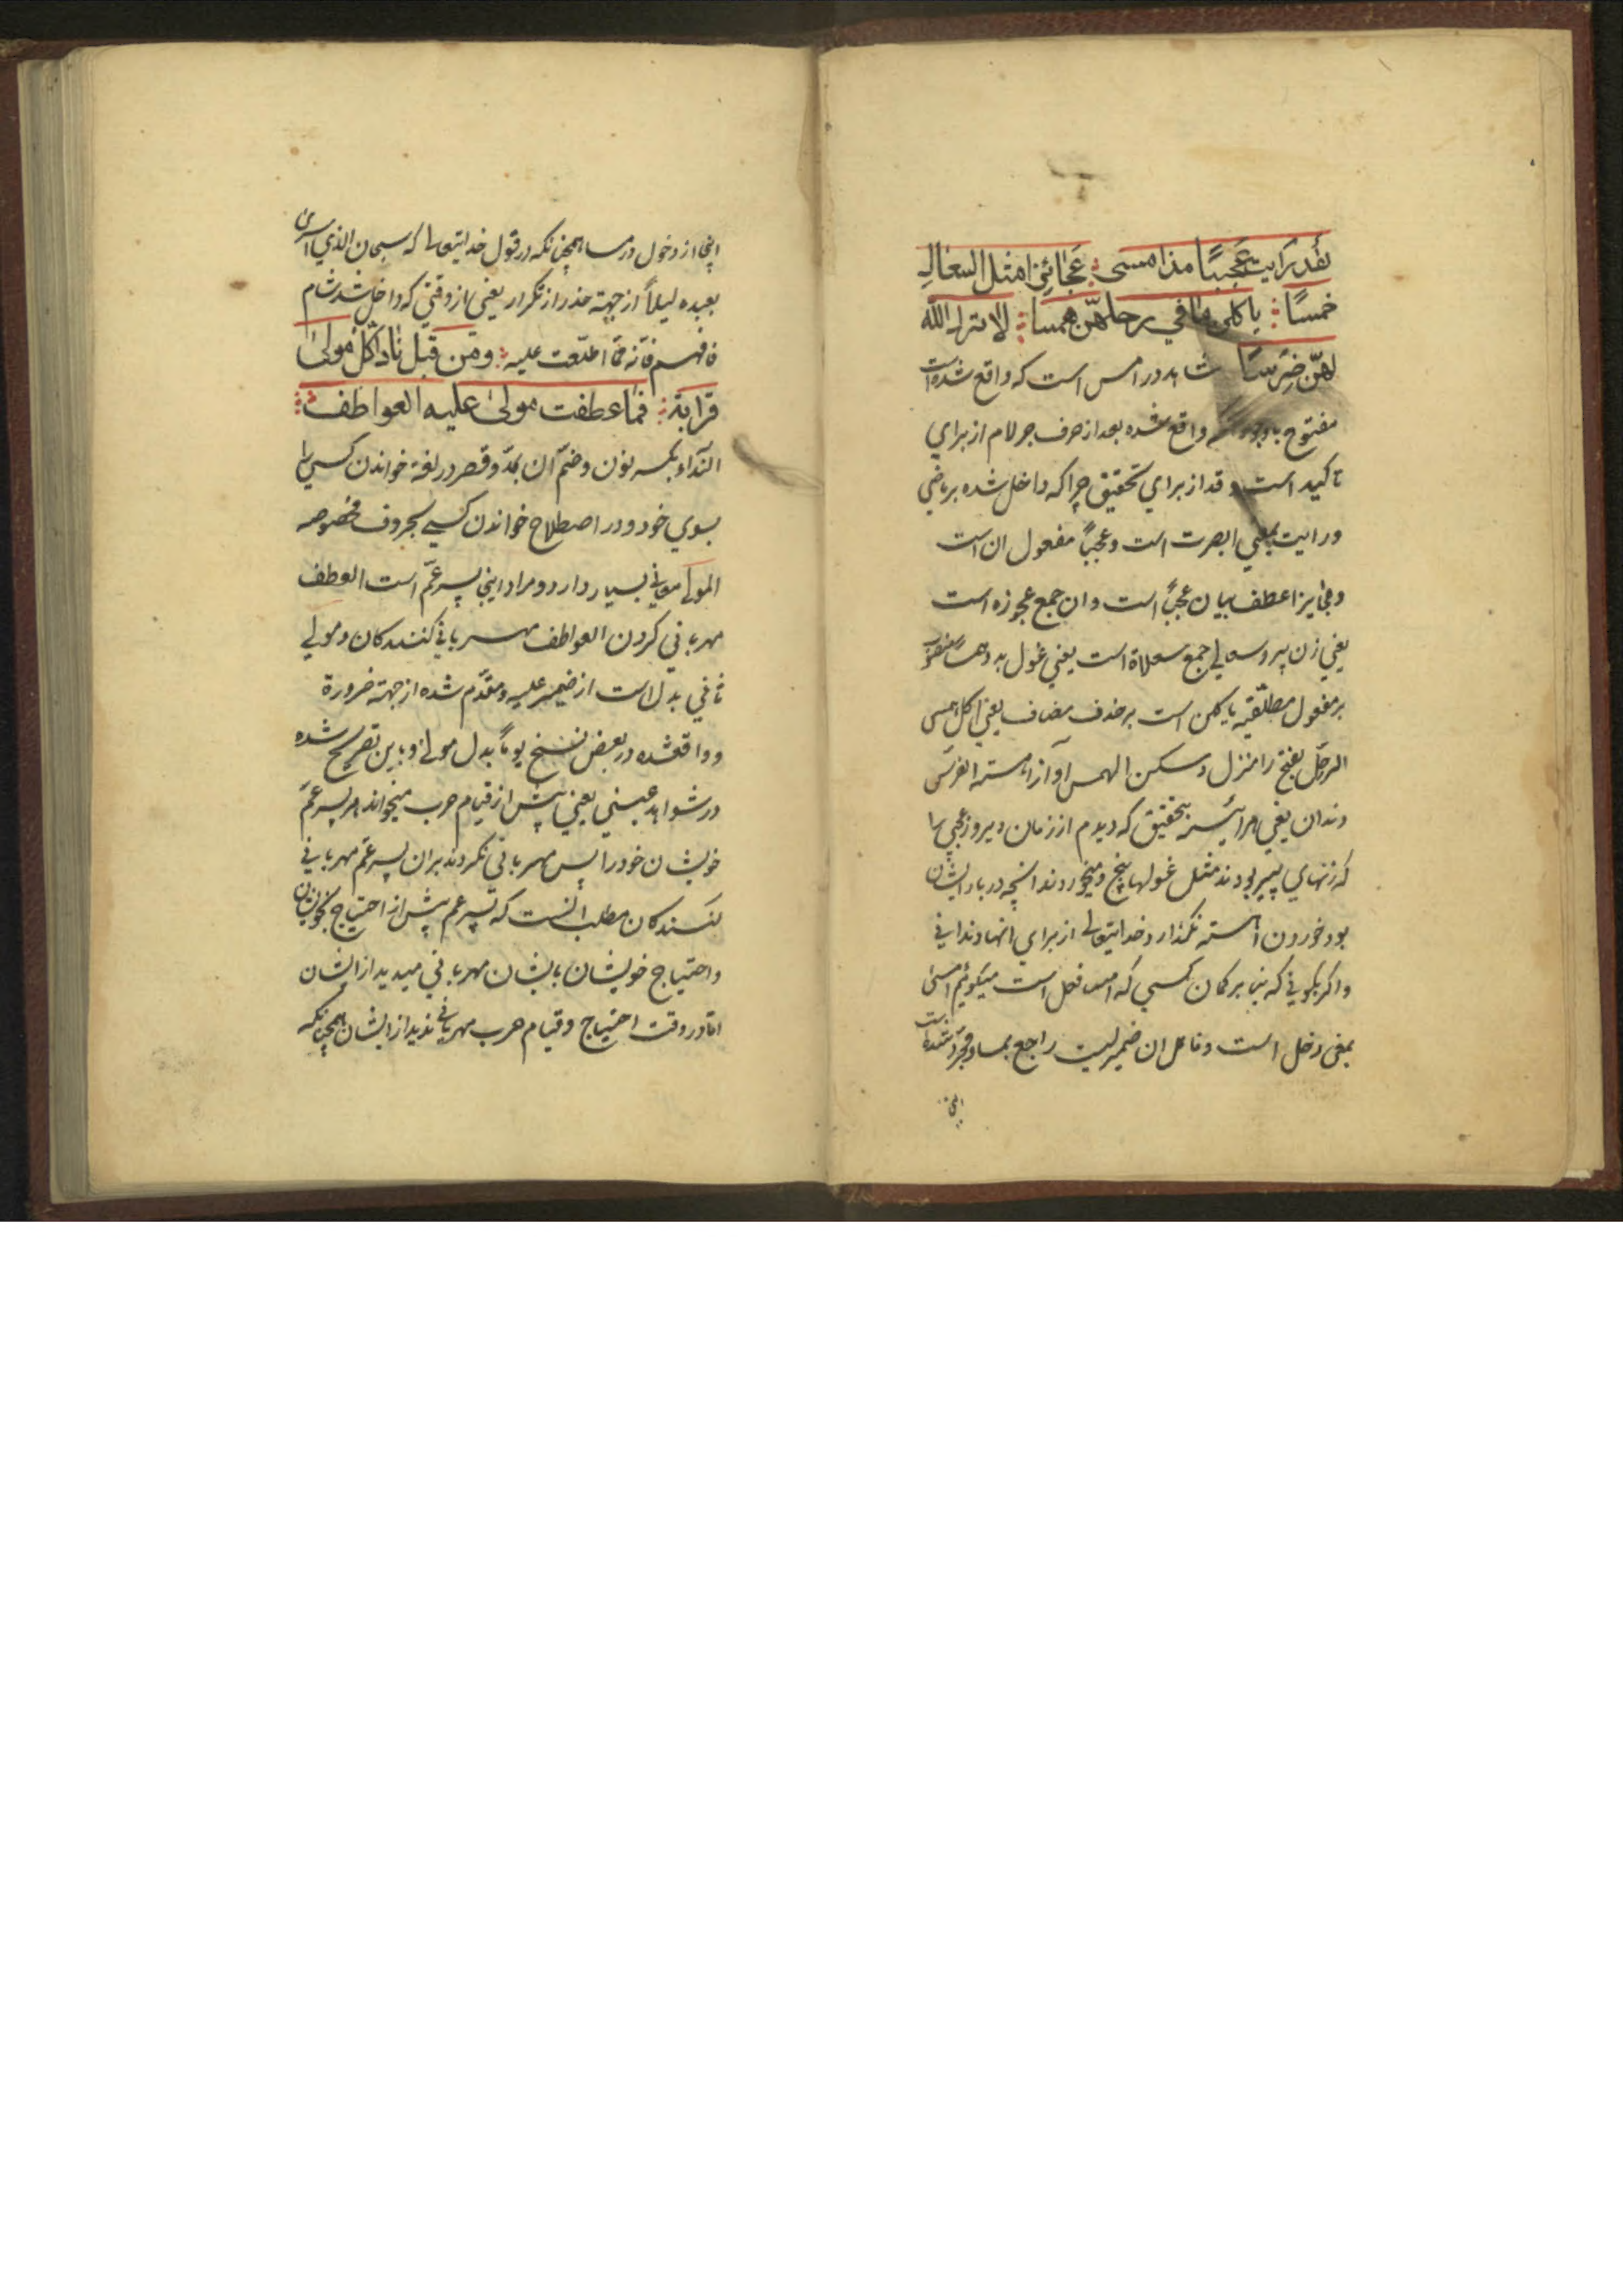 لقد رایت عجبًا مذ امسی ؞ عجائزا مثل السعالی
خمسًا ؞ یاکلن ما فی رحلهنّ همسا ؞ لا ترك الله
لهنّ ضرسًا شاهد در امس است که واقع شده است
مفتوح واقع شده بعد از حرف جر لام از برای
تاکید است و قد از برای تحقیق چرا که داخل شده بر ماضی
و رایت بمعنی ابصرت است و عجبًا مفعول ان است
و عجایزا عطف بیان عجبًا است و ان جمع عجوزه است
یعنی زن پیر و سعالی جمع سعلاة است یعنی غول بد و همسًا منصوب
بر مفعول مطلقیه یاکلن است بر حذف مضاف یعنی اکل همس
الرحل بفتح را منزل و مسکن الهمس آواز آهسته الضرس
دندان یعنی هر آینه بتحقیق که دیدم از زمان دیروز عجبی را
که زنهای پیر بودند مثل غولها پنج و میخوردند آنچه در بار ایشان
بود خوردن آهسته نگذارد خدایتعالی از برای انها دندانی
و اگر بگویی که بنا بر گمان کسی که امس فعل است میگوئیم امسی
بمعنی دخل است و فاعل ان ضمیریست راجع بمساء و مجرد شده است
اینجا
اینجا از دخول در مسا همچنانکه در قول خدایتعالی که سبحان الذی اسری
بعبده لیلاً از جهته حذر از تکرار یعنی از وقتی که داخل شد شام
فافهم فانّه ممّا اطلعت علیه ؞ ومن قبل نادی کل مولیٰ
قرابة ؞ فما عطفت مولیٰ علیه العواطف ؞
النداء بکسر نون و ضمّ آن بمدّ و قصر در لغة خواندن کسی را
بسوی خود و در اصطلاح خواندن کسی بحروف مخصوصه
المولی معانی بسیار دارد و مراد اینجا پسر عمّ است العطف
مهربانی کردن العواطف مهربانی کنندکان و مولی
ثانی بدل است از ضمیر علیه و مقدّم شده از جهته ضرورة
و واقعشده در بعض نسخ یوماً بدل مولی و باین تصریح شده
در شواهد عینی یعنی پیش از قیام حرب میخواند هر پسر عمّ
خویشان خود را پس مهربانی نکردند بر ان پسر عمّ مهربانی
کنندکان مطلب انست که پسر عم پیش از احتیاج بخویشان
و احتیاج خویشان بایشان مهربانی میدید از ایشان
امّا در وقت احتیاج و قیام حرب مهربانی ندید از ایشان همچنانکه